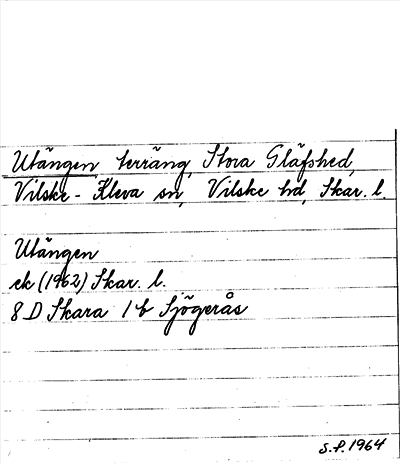 Utängen, terräng, Stora Gläfshed,
Vilske-Kleva sn, Vilske hd, Skar. l.
Utängen
ek (1962) Skar. l.
8 D Skara 1 b Sjögerås
S.P. 1964